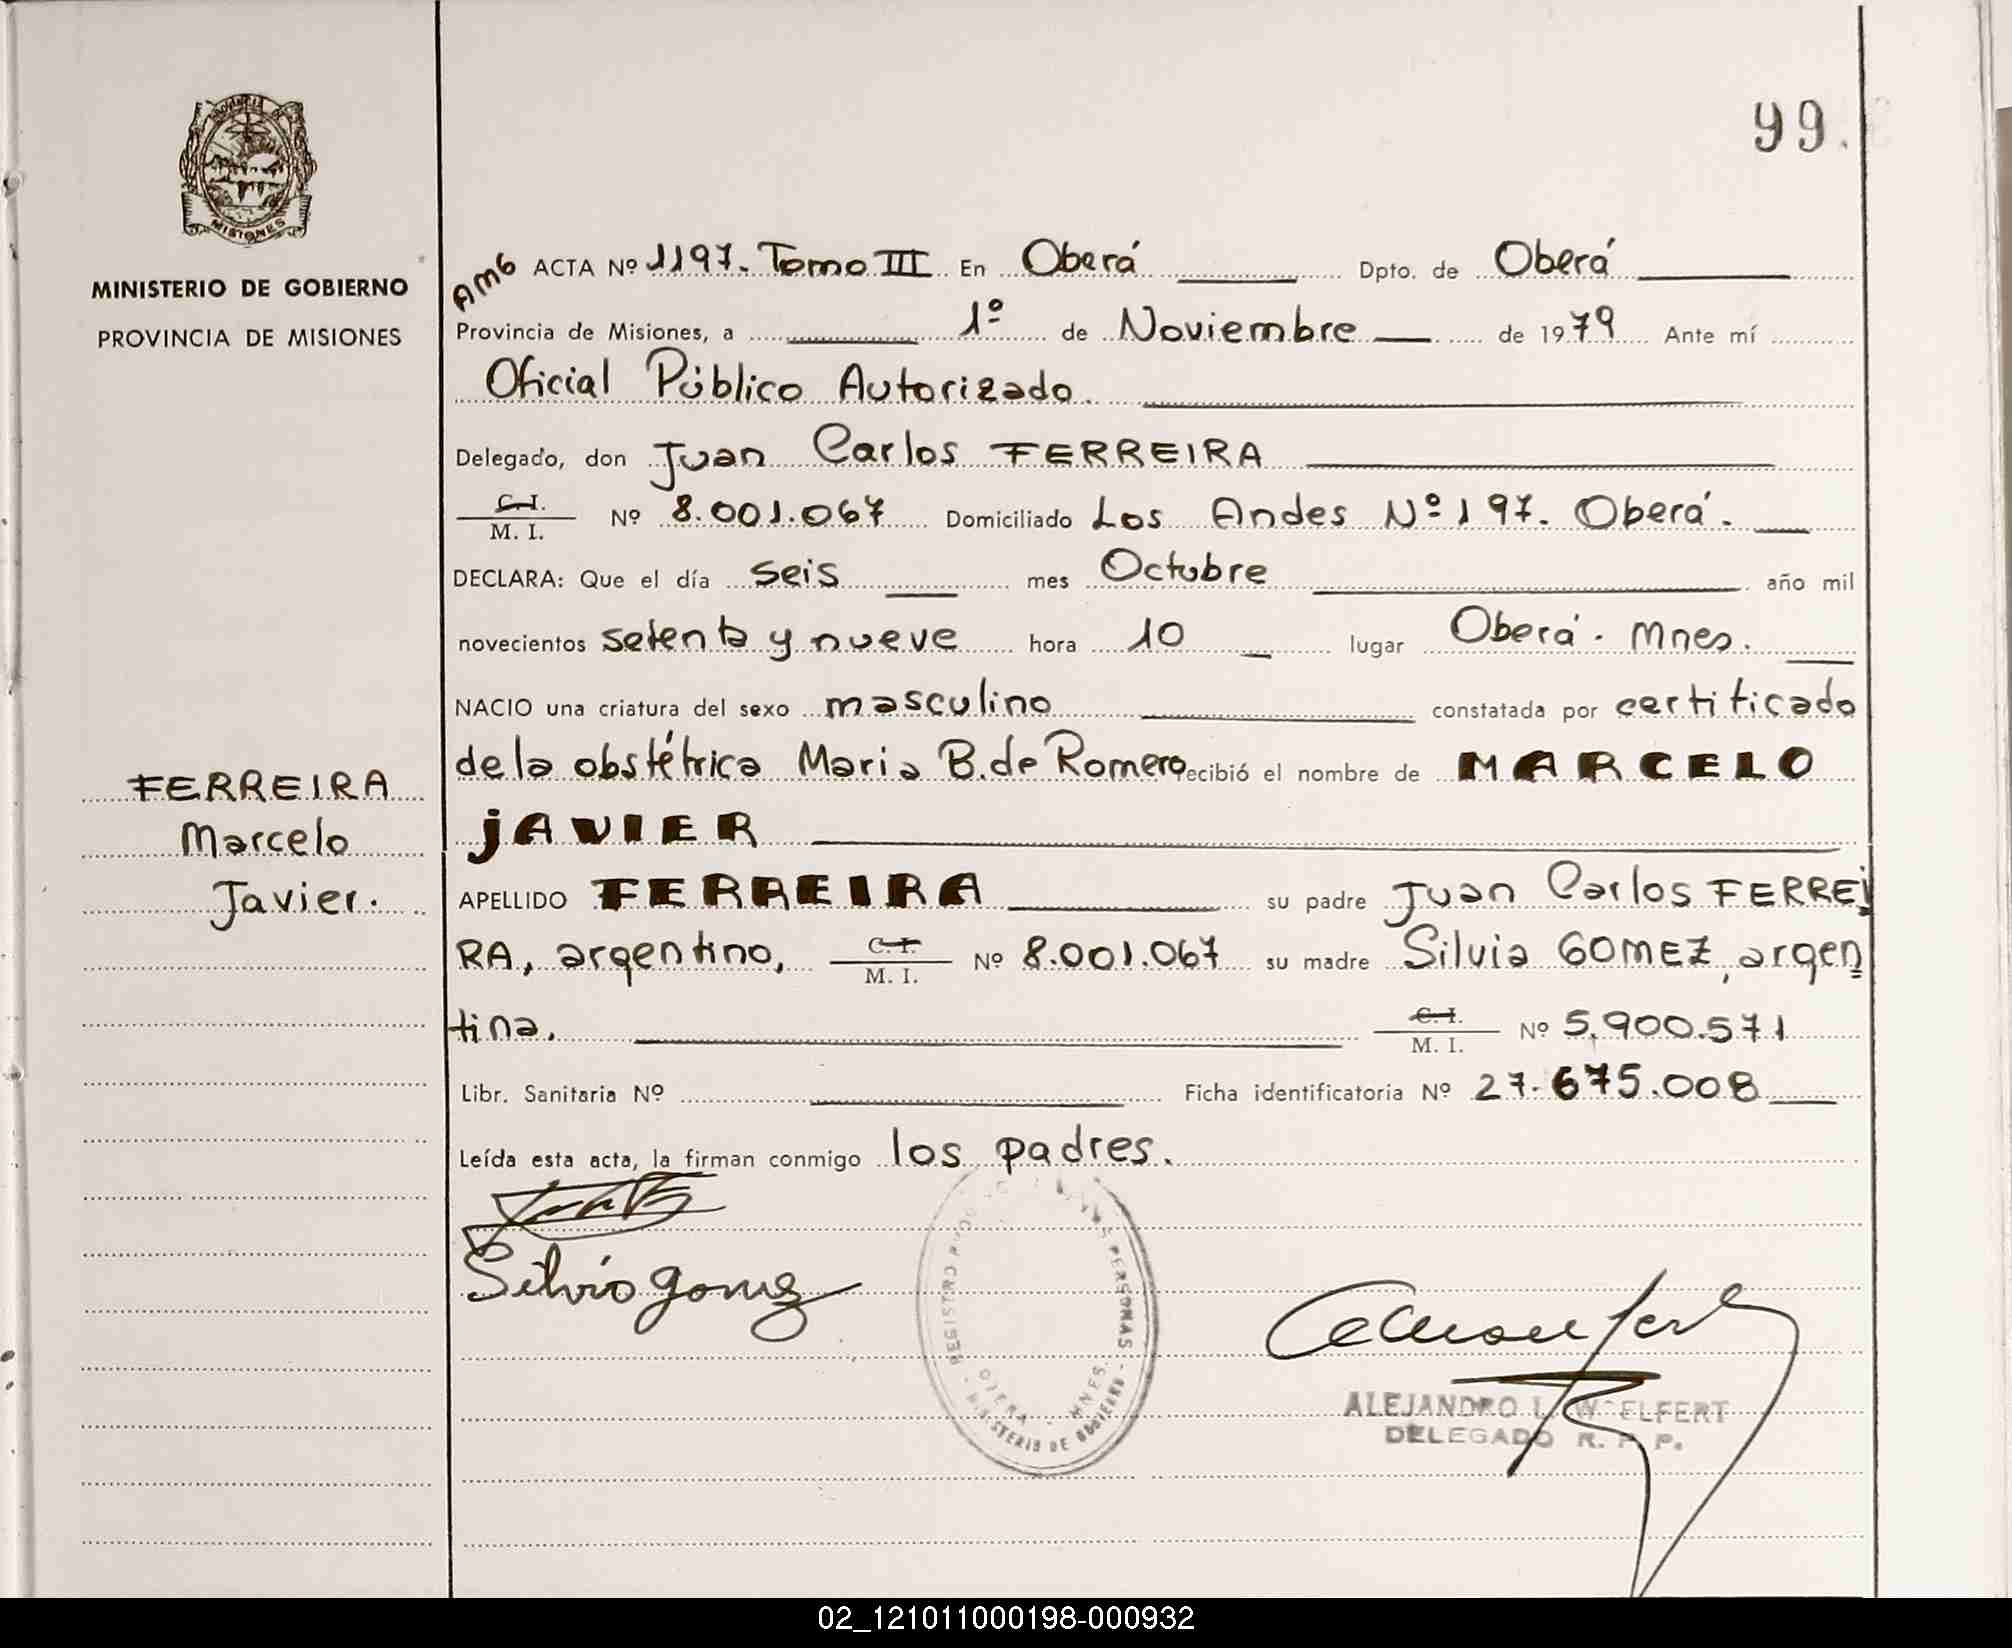 99.
PROVINCIA
MISIONES
MINISTERIO DE GOBIERNO
PROVINCIA DE MISIONES
FERREIRA
Marcelo
Javier.
AMG ACTA Nº 1197. Tomo III En Oberá Dpto. de Oberá
Provincia de Misiones, a 1º de Noviembre de 1979 Ante mí
Oficial Público Autorizado.
Delegado, don Juan Carlos FERREIRA
C. I.
M. I. Nº 8.001.067 Domiciliado Los Andes Nº 197. Oberá.
DECLARA: Que el día seis mes Octubre año mil
novecientos setenta y nueve hora 10 lugar Oberá. Mnes.
NACIO una criatura del sexo masculino constatada por certificado
de la obstétrica Maria B. de Romero recibió el nombre de MARCELO
JAVIER
APELLIDO FERREIRA su padre Juan Carlos FERREI
RA, argentino, C. I. M. I. Nº 8.001.067 su madre Silvia GOMEZ, argen
tina. C. I. M. I. Nº 5.900.571
Libr. Sanitaria Nº Ficha identificatoria Nº 27.675.008
Leída esta acta, la firman conmigo los padres.
Silvia Gomez
REGISTRO PERSONAS
MINISTERIO DE GOBIERNO
OBERA - MNES.
ALEJANDRO WOELFERT
DELEGADO R. P. P.
02_121011000198-000932